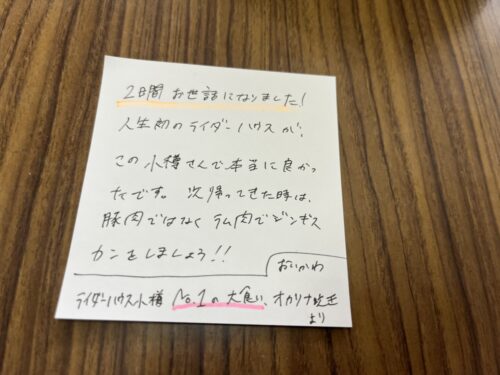 2日間 お世話になりました!
人生初のライダーハウスが、
この小樽さんで本当に良かっ
たです。 次帰ってきた時は、
豚肉ではなく ラム肉でジンギス
カンをしましょう!!
おいかわ
ライダーハウス小樽 No.1の大食い、オカリナ吹き
より